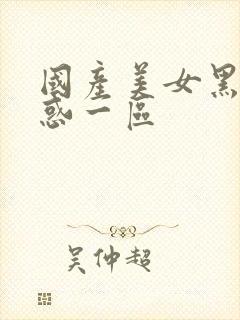 國產美女黑
惑一區
吳仲超